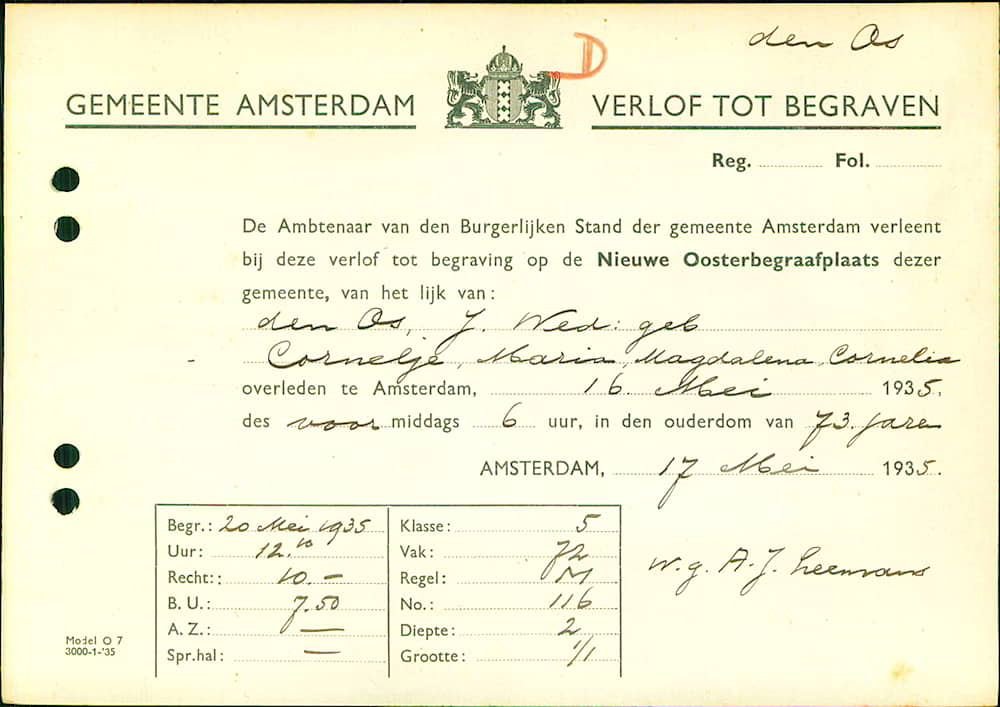 den Os
D
GEMEENTE AMSTERDAM VERLOF TOT BEGRAVEN
Reg. Fol.
De Ambtenaar van den Burgerlijken Stand der gemeente Amsterdam verleent
bij deze verlof tot begraving op de Nieuwe Oosterbegraafplaats dezer
gemeente, van het lijk van:
den Os, J. Wed: geb
Cornelje, Maria, Magdalena, Cornelia
overleden te Amsterdam, 16 Mei 1935.
des voor middags 6 uur, in den ouderdom van 73. jaren
AMSTERDAM, 17 Mei 1935.
Begr.: 20 Mei 1935 Klasse: 5
Uur: 12.10 Vak: 72
Recht:: 10.- Regel: M
B. U.: 7.50 No.: 116
A. Z.: — Diepte: 2
Spr.hal: — Grootte: 1/1
w.g. A.J. Leemans
Model O 7
3000-1-'35